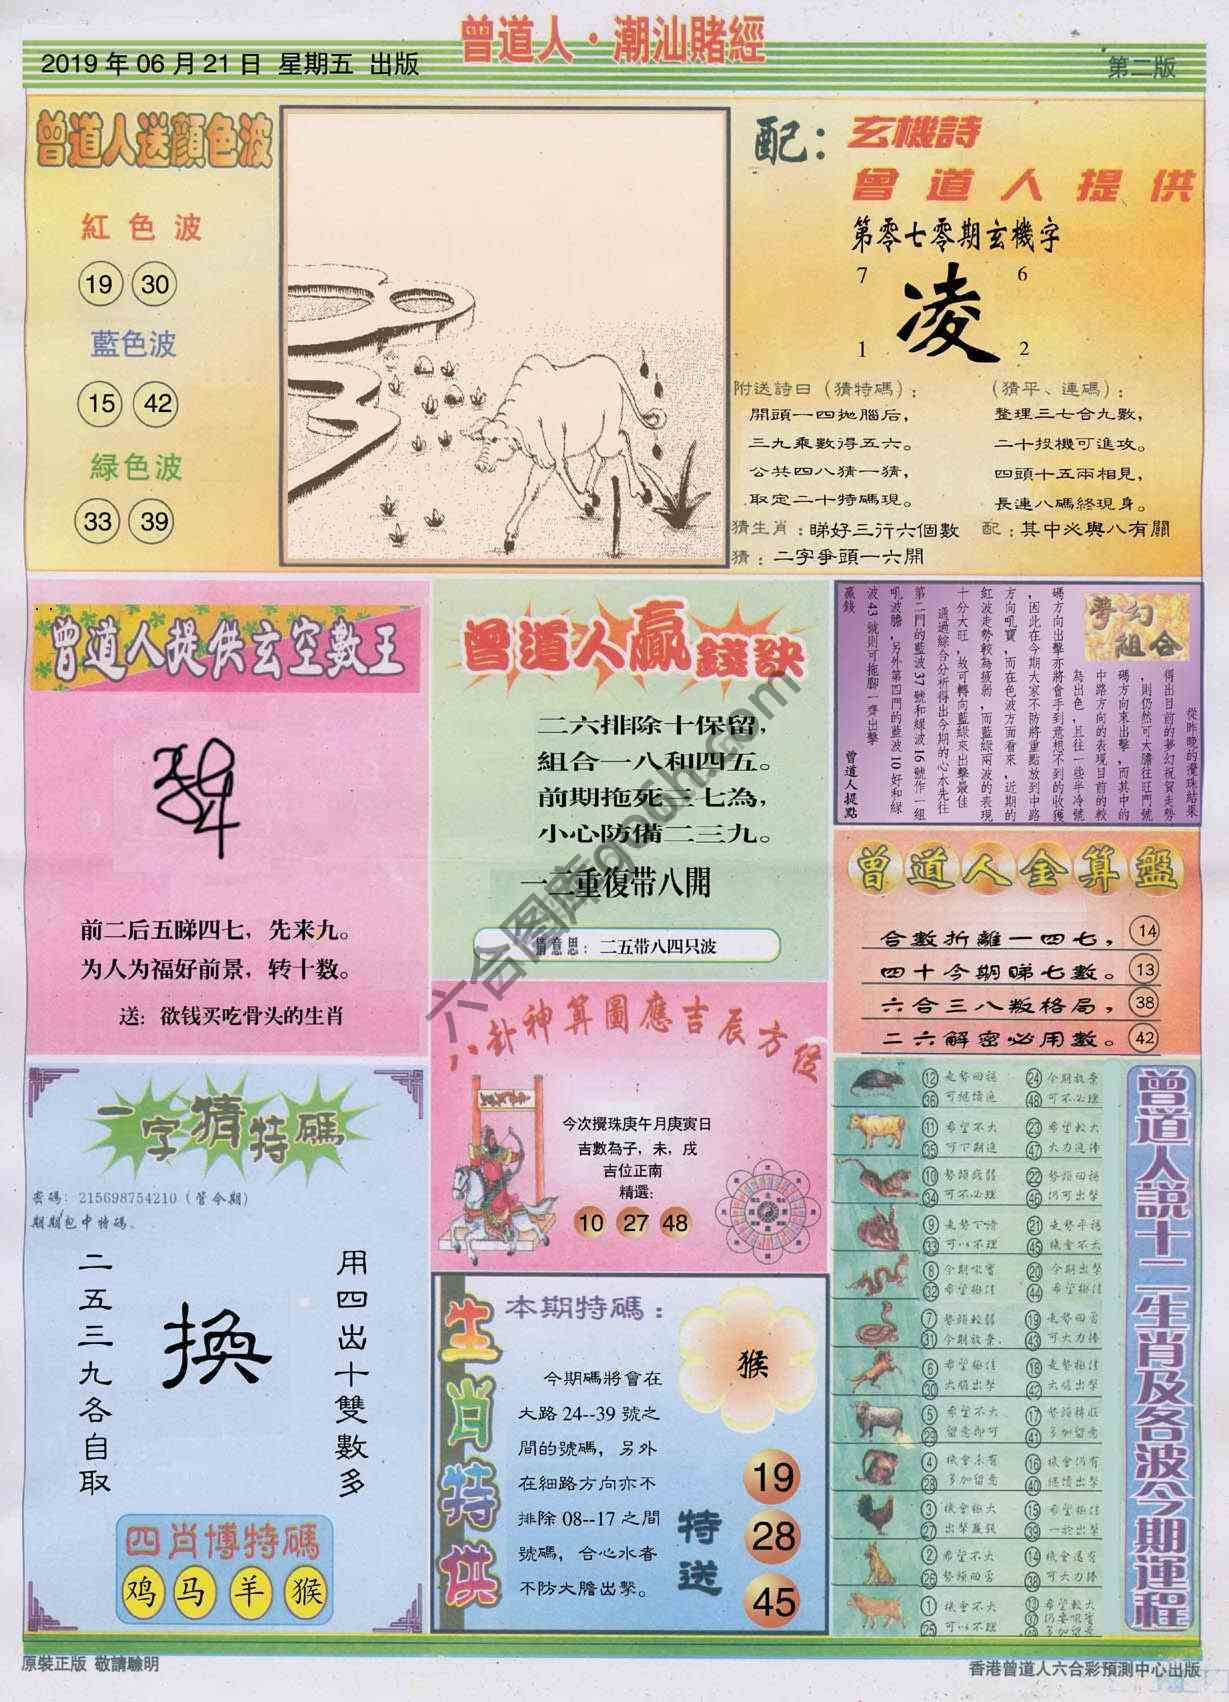 曾道人·潮汕賭經
2019 年 06 月 21 日 星期五 出版
第二版
曾道人送顏色波
紅色波
19 30
藍色波
15 42
綠色波
33 39
配：玄機詩
曾道人提供
第零七零期玄機字
7 6
凌
1 2
附送詩曰（猜特碼）：
開頭一四拋腦后，
三九乘數得五六。
公共四八猜一猜，
取定二十特碼現。
（猜平、連碼）：
整理三七合九數，
二十投機可進攻。
四頭十五兩相見，
長連八碼終現身。
猜生肖：睇好三行六個數
配：其中必與八有關
猜：二字爭頭一六開
曾道人提供玄空數王
前二后五睇四七，先来九。
为人为福好前景，转十数。
送：欲钱买吃骨头的生肖
曾道人贏錢訣
二六排除十保留，
組合一八和四五。
前期拖死三七為，
小心防備二三九。
一二重復带八開
猜意思：二五带八四只波
夢幻組合
從昨晚的攪珠結果
得出目前的夢幻祝賀走勢
，則仍然可大膽往旺門號
碼方向來出擊，而其中的
中路方向的表現目前的較
為出色，且往一些半冷號
碼方向出擊亦將會手到意想不到的收獲
，因此在今期大家不防將重點放到中路
方向吼寶，而在色波方面看來，近期的
紅波走勢較為疲弱，而藍綠兩波的表現
十分大旺，故可轉向藍綠來出擊最佳
通過綜合分析得出今期的心水先往
第二門的藍波 37 號和綠波 16 號作一組
吼波膽，另外第四門的藍波 10 好和綠
波 43 號則可拖腳一齊出擊
贏錢
曾道人提點
曾道人金算盤
合數折離一四七， 14
四十今期睇七數。 13
六合三八叛格局， 38
二六解密必用數。 42
八卦神算圖應吉辰方位
今次攪珠庚午月庚寅日
吉數為子，未，戌
吉位正南
精選：
10 27 48
一字猜特碼
密碼：215698754210（管令期）
期期包中特碼。
用四出十雙數多
換
二五三九各自取
四肖博特碼
鸡 马 羊 猴
生肖特供
本期特碼：
猴
今期碼將會在
大路 24--39 號之
間的號碼，另外
在細路方向亦不
排除 08--17 之間
號碼，合心水者
不防大膽出擊。
特送
19
28
45
曾道人說十二生肖及各波今期運程
12 走勢回穩 24 今期放棄
36 可繼續追 48 可不必理
11 希望不大 23 希望較大
35 可下期追 47 大力追捧
10 勢頭疲弱 22 勢頭回穩
34 可不必理 46 仍可出擊
9 走勢下滑 21 走勢平穩
33 可以不理 45 機會不大
8 今期吼寶 20 今期出擊
32 希望極佳 44 希望極佳
7 勢頭較弱 19 走勢回穩
31 今期放棄 43 可大力捧
6 希望極佳 18 走勢極佳
30 大膽出擊 42 大膽出擊
5 希望不大 17 勢頭轉旺
29 留意即可 41 多加留意
4 機會未有 16 機會仍有
28 多加留意 40 繼續出擊
3 機會極大 15 希望極佳
27 出擊贏錢 39 一於出擊
2 希望不大 14 機會還有
26 勢頭回落 38 可大力捧
1 機會不大 13 希望較大
25 可以不理 37 仍要吼實
六合图库g6oh.com
原裝正版 敬請驗明
香港曾道人六合彩預測中心出版